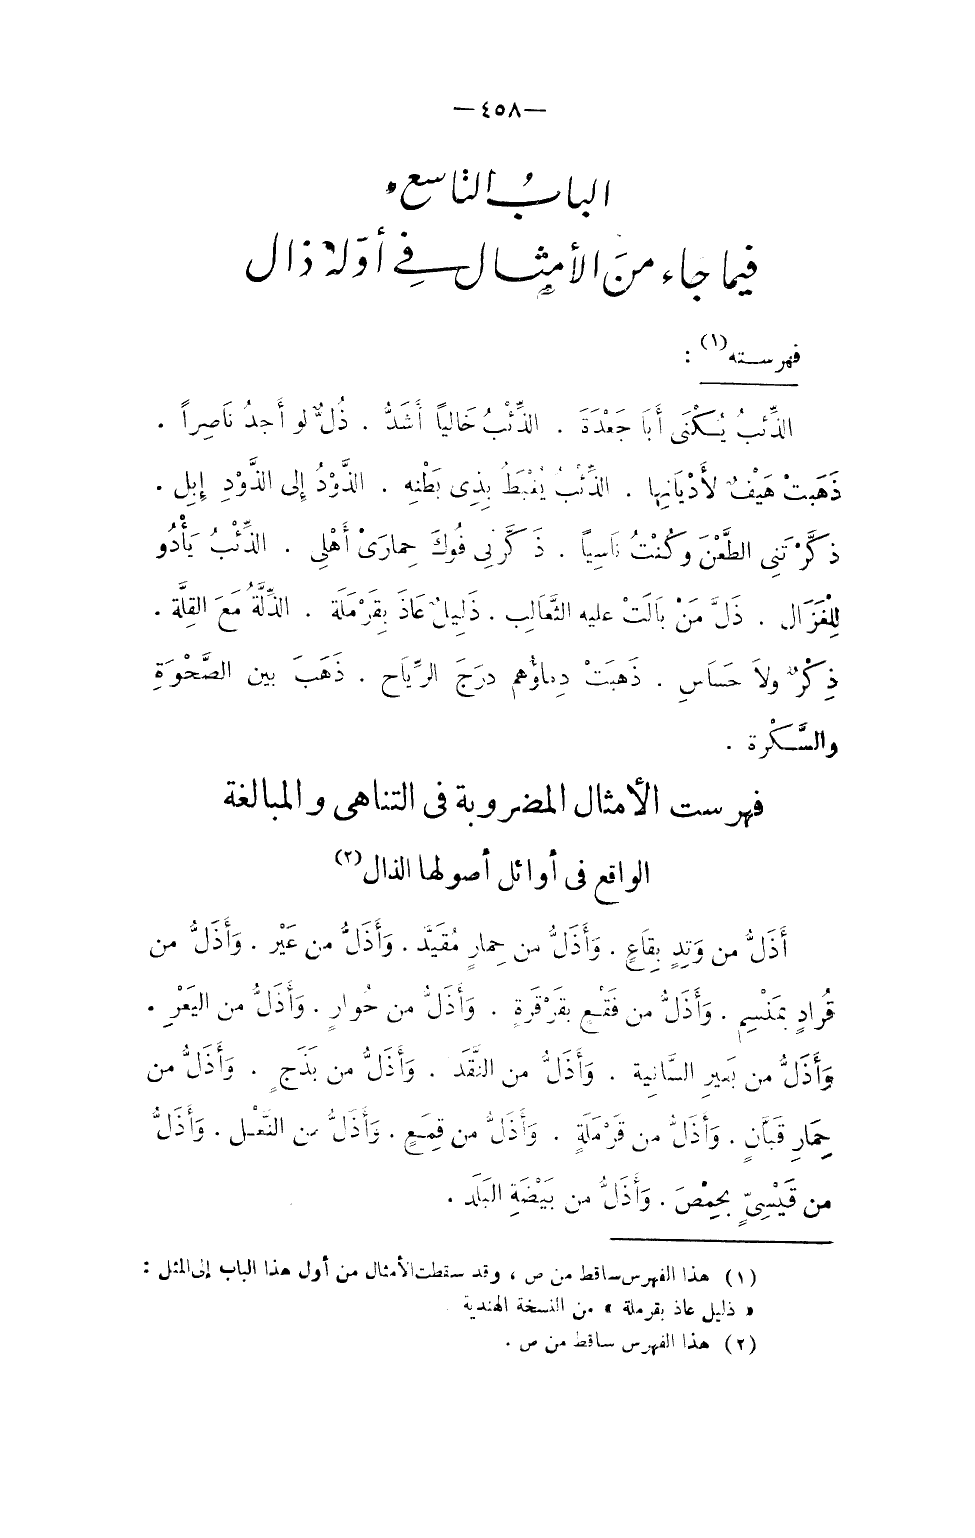 — ٤٥٨ —
البابُ التاسع
فيما جاء منَ الأمثال في أوّله ذال
فهرسته (١) :
الذِّئبُ يُكْنَى أَبَا جَعْدَةَ . الذِّئْبُ خَالياً أَشَدُّ . ذُلٌّ لو أَجدُ نَاصِراً .
ذَهَبتْ هَيْفٌ لأَدْيَانِها . الذِّئْبُ يُغْبَطُ بِذِى بَطْنِه . الذَّوْدُ إلى الذَّوْدِ إبِل .
ذكَّرْتَنِى الطَّعْنَ وكُنْتُ نَاسِياً . ذَكَّرنِى فُوكَ حِمارَىْ أَهْلِى . الذِّئْبُ يَأْدُو
لِلْغَزَالِ . ذَلَّ مَنْ بَالَتْ عليه الثَّعَالِب . ذَلِيلٌ عَاذَ بِقَرْمَلَة . الذِّلَّةُ مَعَ القِلَّة .
ذِكْرٌ ولاَ حَسَاسِ . ذَهَبَتْ دِماؤُهم درَجَ الرِّيَاح . ذَهَبَ بين الصَّحْوَةِ
والسَّكْرة .
فهرست الأمثال المضروبة فى التناهى والمبالغة
الواقع فى أوائل أصولها الذال (٢)
أَذَلُّ من وَتِدٍ بِقَاعٍ . وَأَذَلُّ من حِمارٍ مُقَيَّد . وَأَذَلُّ من عَيْر . وَأَذَلُّ من
قُرادٍ بمَنْسِمٍ . وَأَذَلُّ من فَقْعٍ بقَرْقَرَةٍ . وَأَذَلُّ من حُوارٍ . وَأَذَلُّ من اليَعْرِ .
وَأَذَلُّ من بَعيرِ السَّانِية . وَأَذَلُّ من النَّقَد . وَأَذَلُّ من بَذَجٍ . وَأَذَلُّ من
حِمارِ قَبَّانٍ . وَأَذَلُّ من قَرْمَلَةٍ . وَأَذَلُّ من قِمَعٍ . وَأَذَلُّ من النَّعْلِ . وَأَذَلُّ
من قَيْسِىٍّ بِحِمْصَ . وَأَذَلُّ من بَيْضَةِ البَلَد .
(١) هذا الفهرس ساقط من ص ، وقد سقطت الأمثال من أول هذا الباب إلى المثل :
« ذليل عاذ بقرملة » من النسخة الهندية
(٢) هذا الفهرس ساقط من ص .